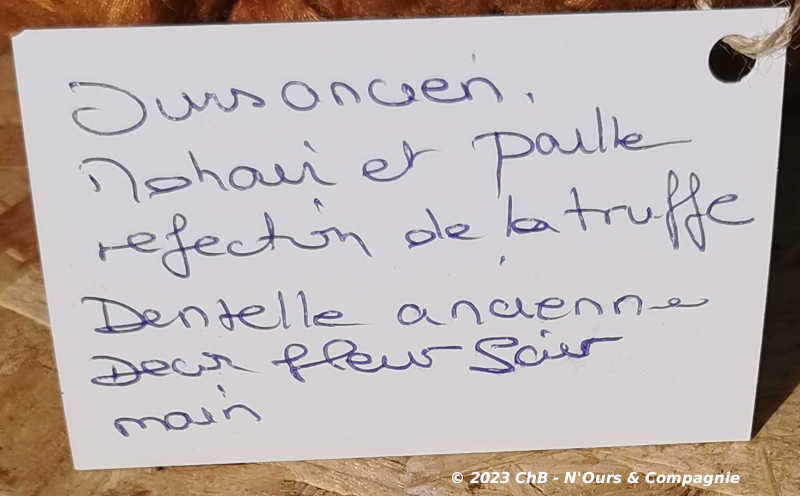 Ours ancien.
Mohair et paille
refection de la truffe
Dentelle ancienne
Decor fleur Fait
main
© 2023 ChB - N'Ours & Compagnie